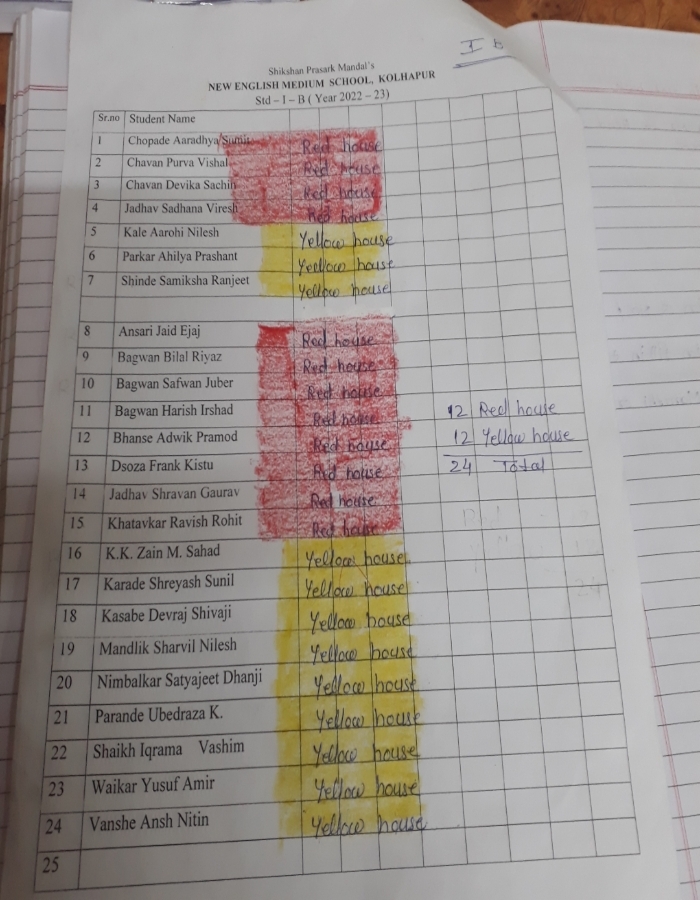 I b
Shikshan Prasark Mandal's
NEW ENGLISH MEDIUM SCHOOL, KOLHAPUR
Std – I – B ( Year 2022 – 23)
Sr.no Student Name
1 Chopade Aaradhya Sumit Red house
2 Chavan Purva Vishal Red house
3 Chavan Devika Sachin Red house
4 Jadhav Sadhana Viresh Red house
5 Kale Aarohi Nilesh Yellow house
6 Parkar Ahilya Prashant Yeellow house
7 Shinde Samiksha Ranjeet Yellow house
8 Ansari Jaid Ejaj Red house
9 Bagwan Bilal Riyaz Red house
10 Bagwan Safwan Juber Red house
11 Bagwan Harish Irshad Red house 12 Red house
12 Bhanse Adwik Pramod Red house 12 Yellow house
13 Dsoza Frank Kistu Red house 24 Total
14 Jadhav Shravan Gaurav Red house
15 Khatavkar Ravish Rohit Red house
16 K.K. Zain M. Sahad Yellow house
17 Karade Shreyash Sunil Yellow house
18 Kasabe Devraj Shivaji Yellow house
19 Mandlik Sharvil Nilesh Yellow house
20 Nimbalkar Satyajeet Dhanji Yellow house
21 Parande Ubedraza K. Yellow house
22 Shaikh Iqrama Vashim Yellow house
23 Waikar Yusuf Amir Yellow house
24 Vanshe Ansh Nitin Yellow house
25